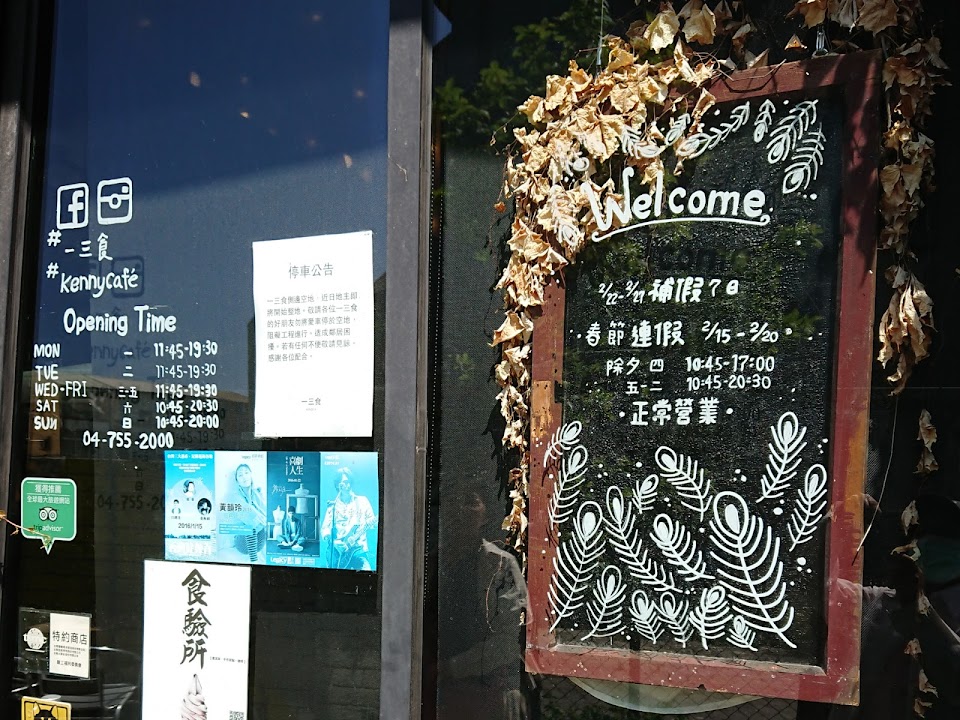 #一三食
#kennycafé
Opening Time
MON 一 11:45-19:30
TUE 二 11:45-19:30
WED-FRI 三-五 11:45-19:30
SAT 六 10:45-20:30
SUN 日 10:45-20:00
04-755-2000
停車公告
一三食側邊空地，近日地主即
將開始整地。敬請各位一三食
的好朋友勿將愛車停於空地，
阻礙工程進行，造成鄰居困
擾。若有任何不便敬請見諒，
感謝各位配合。
一三食
獲得推薦
全球最大旅遊網站
tripadvisor
2016/1/15
黃韻玲
喜劇
人生
Legacy
食驗所
特約商店
Welcome
2/22-2/27 補假7日
·春節連假 2/15-2/20
除夕 四 10:45-17:00
五-二 10:45-20:30
·正常營業·